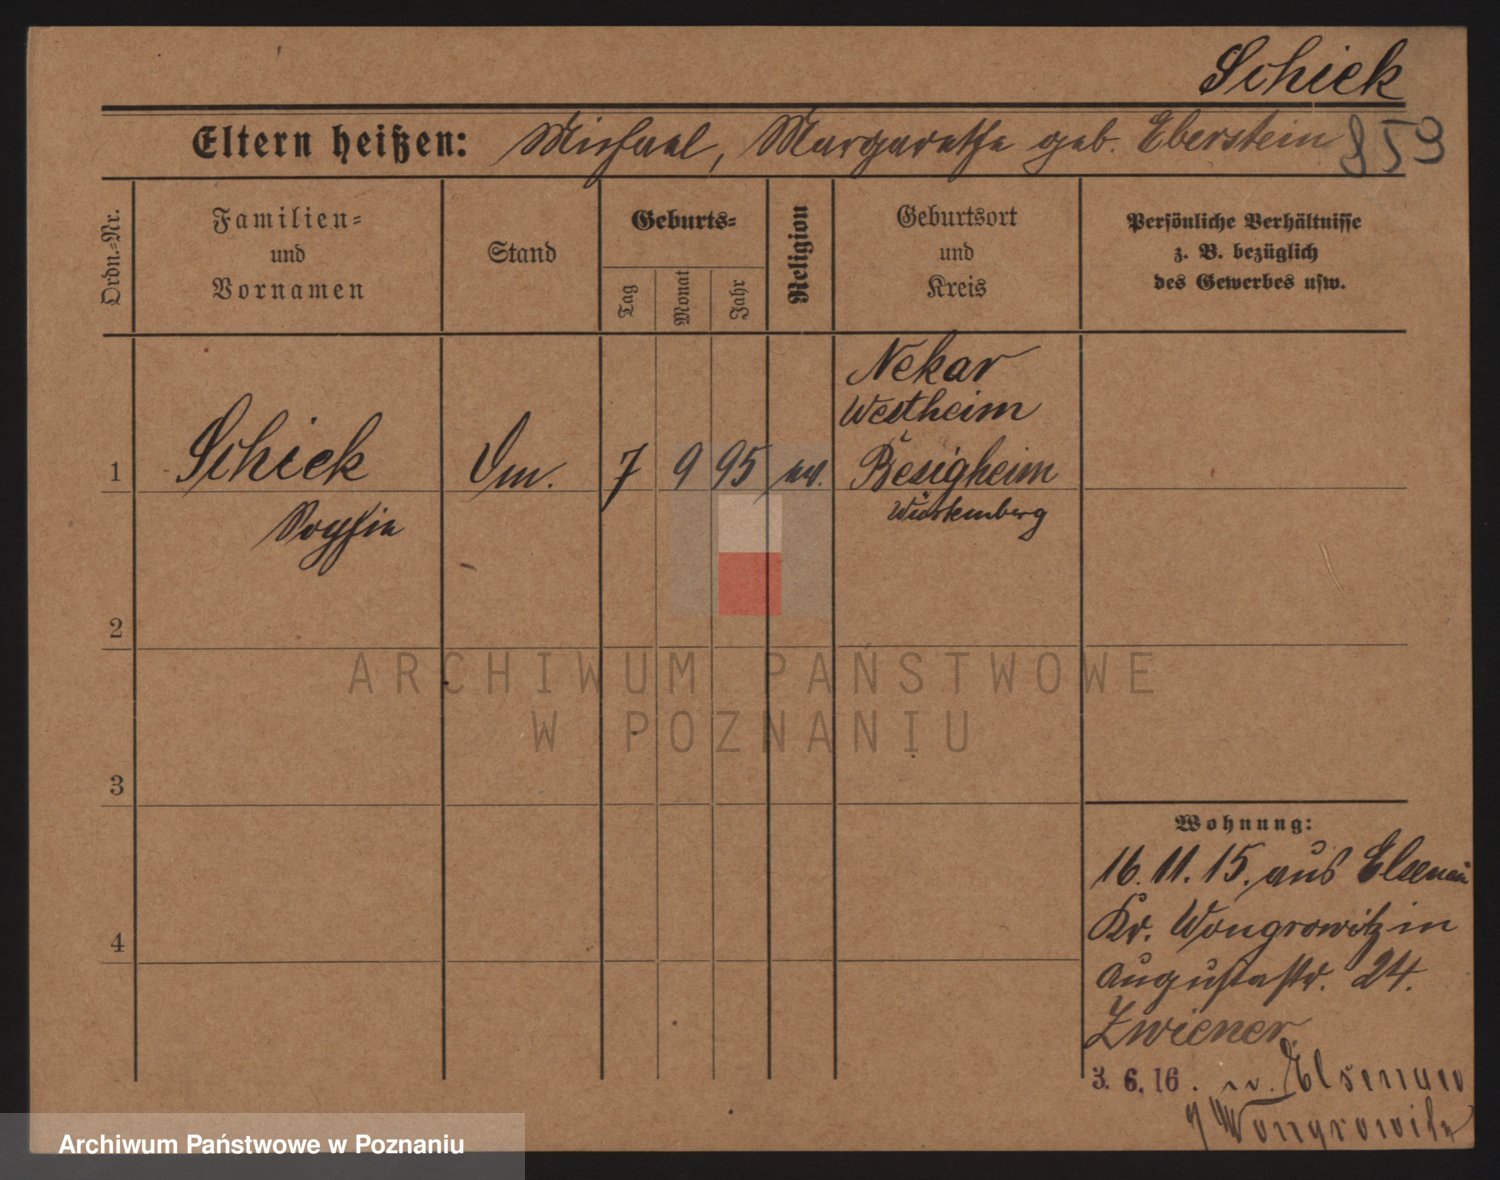 Schiek
Eltern heißen: Michael, Margarethe geb. Eberstein 859
Ordn.-Nr.
Familien-
und
Vornamen
Stand
Geburts-
Tag
Monat
Jahr
Religion
Geburtsort
und
Kreis
Persönliche Verhältnisse
z. B. bezüglich
des Gewerbes usw.
Nekar
Westheim
1 Schiek 7 9 95 Besigheim
Sophie Würtemberg
2
3
4
Wohnung:
16.11.15. aus Elsenau
Kr. Wongrowitz in
Augustastr. 24.
Zwiener.
3.6.16. n. Elsenau
Wongrowitz
ARCHIWUM PAŃSTWOWE
W POZNANIU
Archiwum Państwowe w Poznaniu